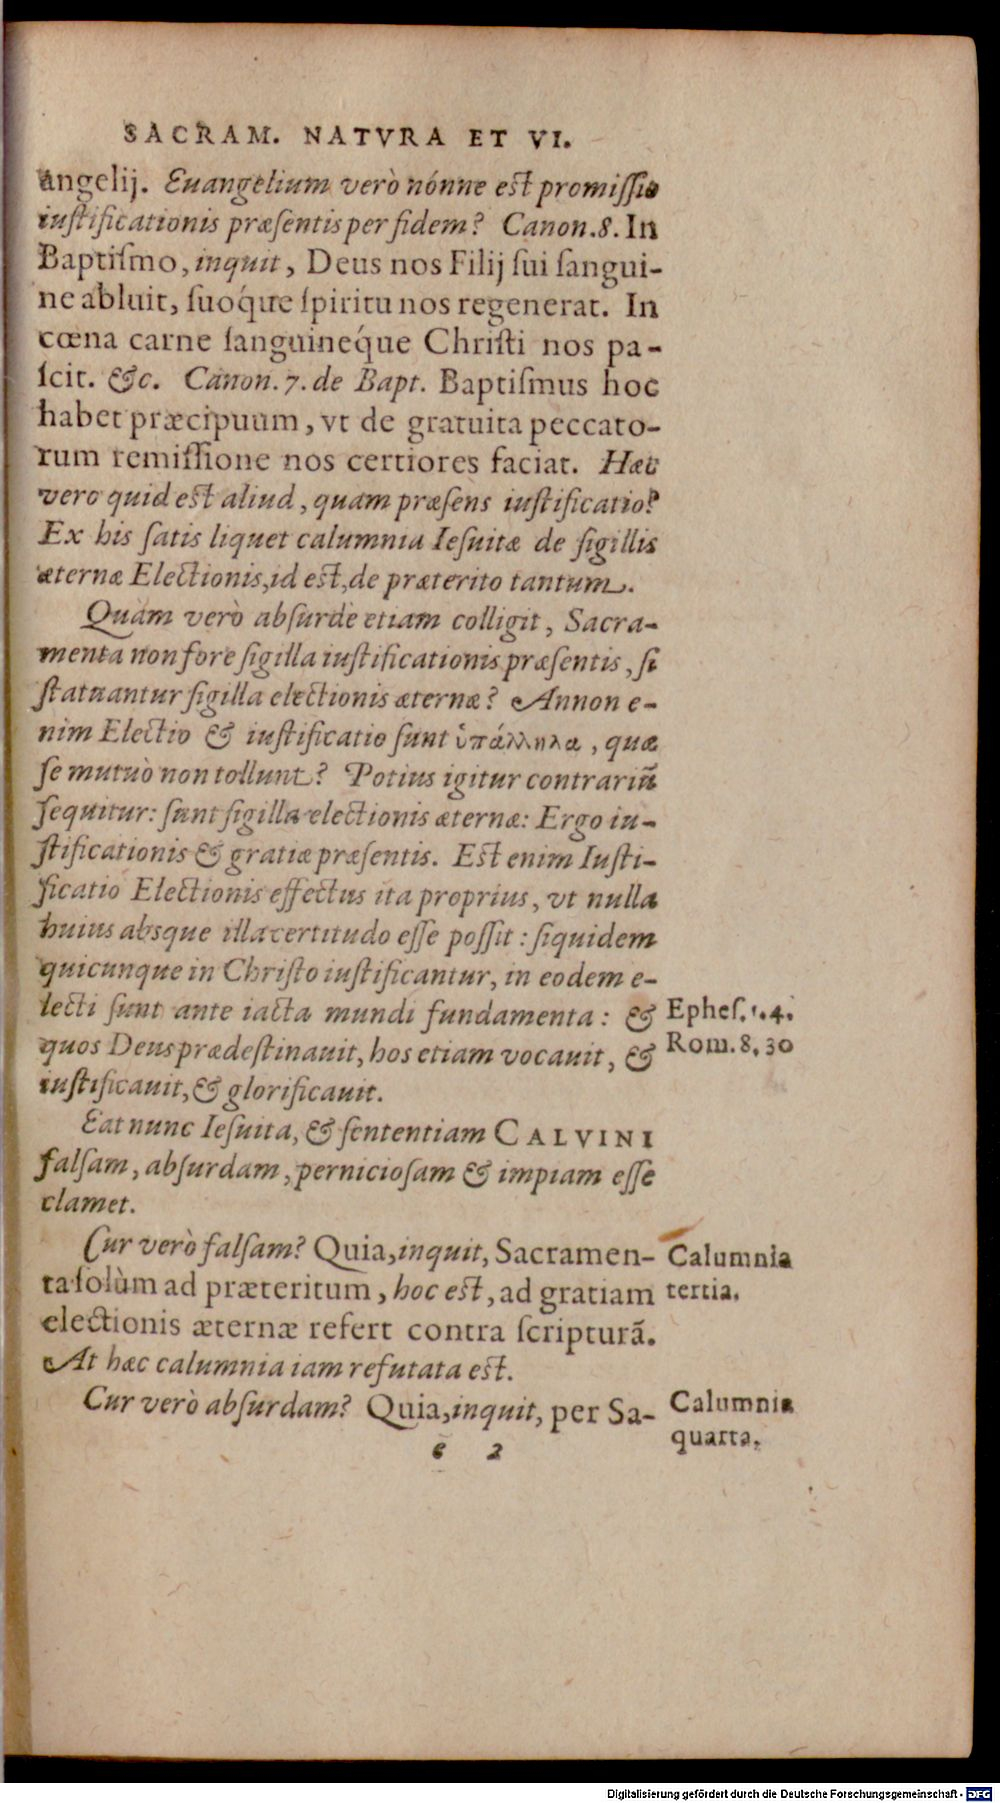 SACRAM. NATVRA ET VI.
angelij. Euangelium verò nónne est promissio
iustificationis præsentis per fidem? Canon. 8. In
Baptiſmo, inquit, Deus nos Filij ſui ſangui-
ne abluit, ſuóque ſpiritu nos regenerat. In
cœna carne ſanguinéque Chriſti nos pa-
ſcit. &c. Canon. 7. de Bapt. Baptiſmus hoc
habet præcipuum, vt de gratuita peccato-
rum remiſſione nos certiores faciat. Hæc
vero quid est aliud, quam præſens iuſtificatio?
Ex his ſatis liquet calumnia Ieſuitæ de ſigillis
æternæ Electionis, id est, de præterito tantum.
Quàm verò abſurdè etiam colligit, Sacra-
menta non fore ſigilla iuſtificationis præſentis, ſi
ſtatuantur ſigilla electionis æternæ? Annon e-
nim Electio & iuſtificatio ſunt ὑπάλληλα, quæ
ſe mutuò non tollunt? Potius igitur contrariũ
ſequitur: ſunt ſigilla electionis æternæ: Ergo iu-
ſtificationis & gratiæ præſentis. Est enim Iuſti-
ficatio Electionis effectus ita proprius, vt nulla
huius absque illa certitudo eſſe poſſit: ſiquidem
quicunque in Chriſto iuſtificantur, in eodem e-
lecti ſunt ante iacta mundi fundamenta: &
Epheſ. 1. 4.
quos Deus prædeſtinauit, hos etiam vocauit, &
Rom. 8. 30
iuſtificauit, & glorificauit.
Eat nunc Ieſuita, & ſententiam CALVINI
falſam, abſurdam, pernicioſam & impiam eſſe
clamet.
Cur verò falſam? Quia, inquit, Sacramen-
Calumnia
ta ſolùm ad præteritum, hoc est, ad gratiam
tertia.
electionis æternæ refert contra ſcripturã.
At hæc calumnia iam refutata est.
Cur verò abſurdam? Quia, inquit, per Sa-
Calumnia
quarta.
e 2
Digitalisierung gefördert durch die Deutsche Forschungsgemeinschaft - DFG